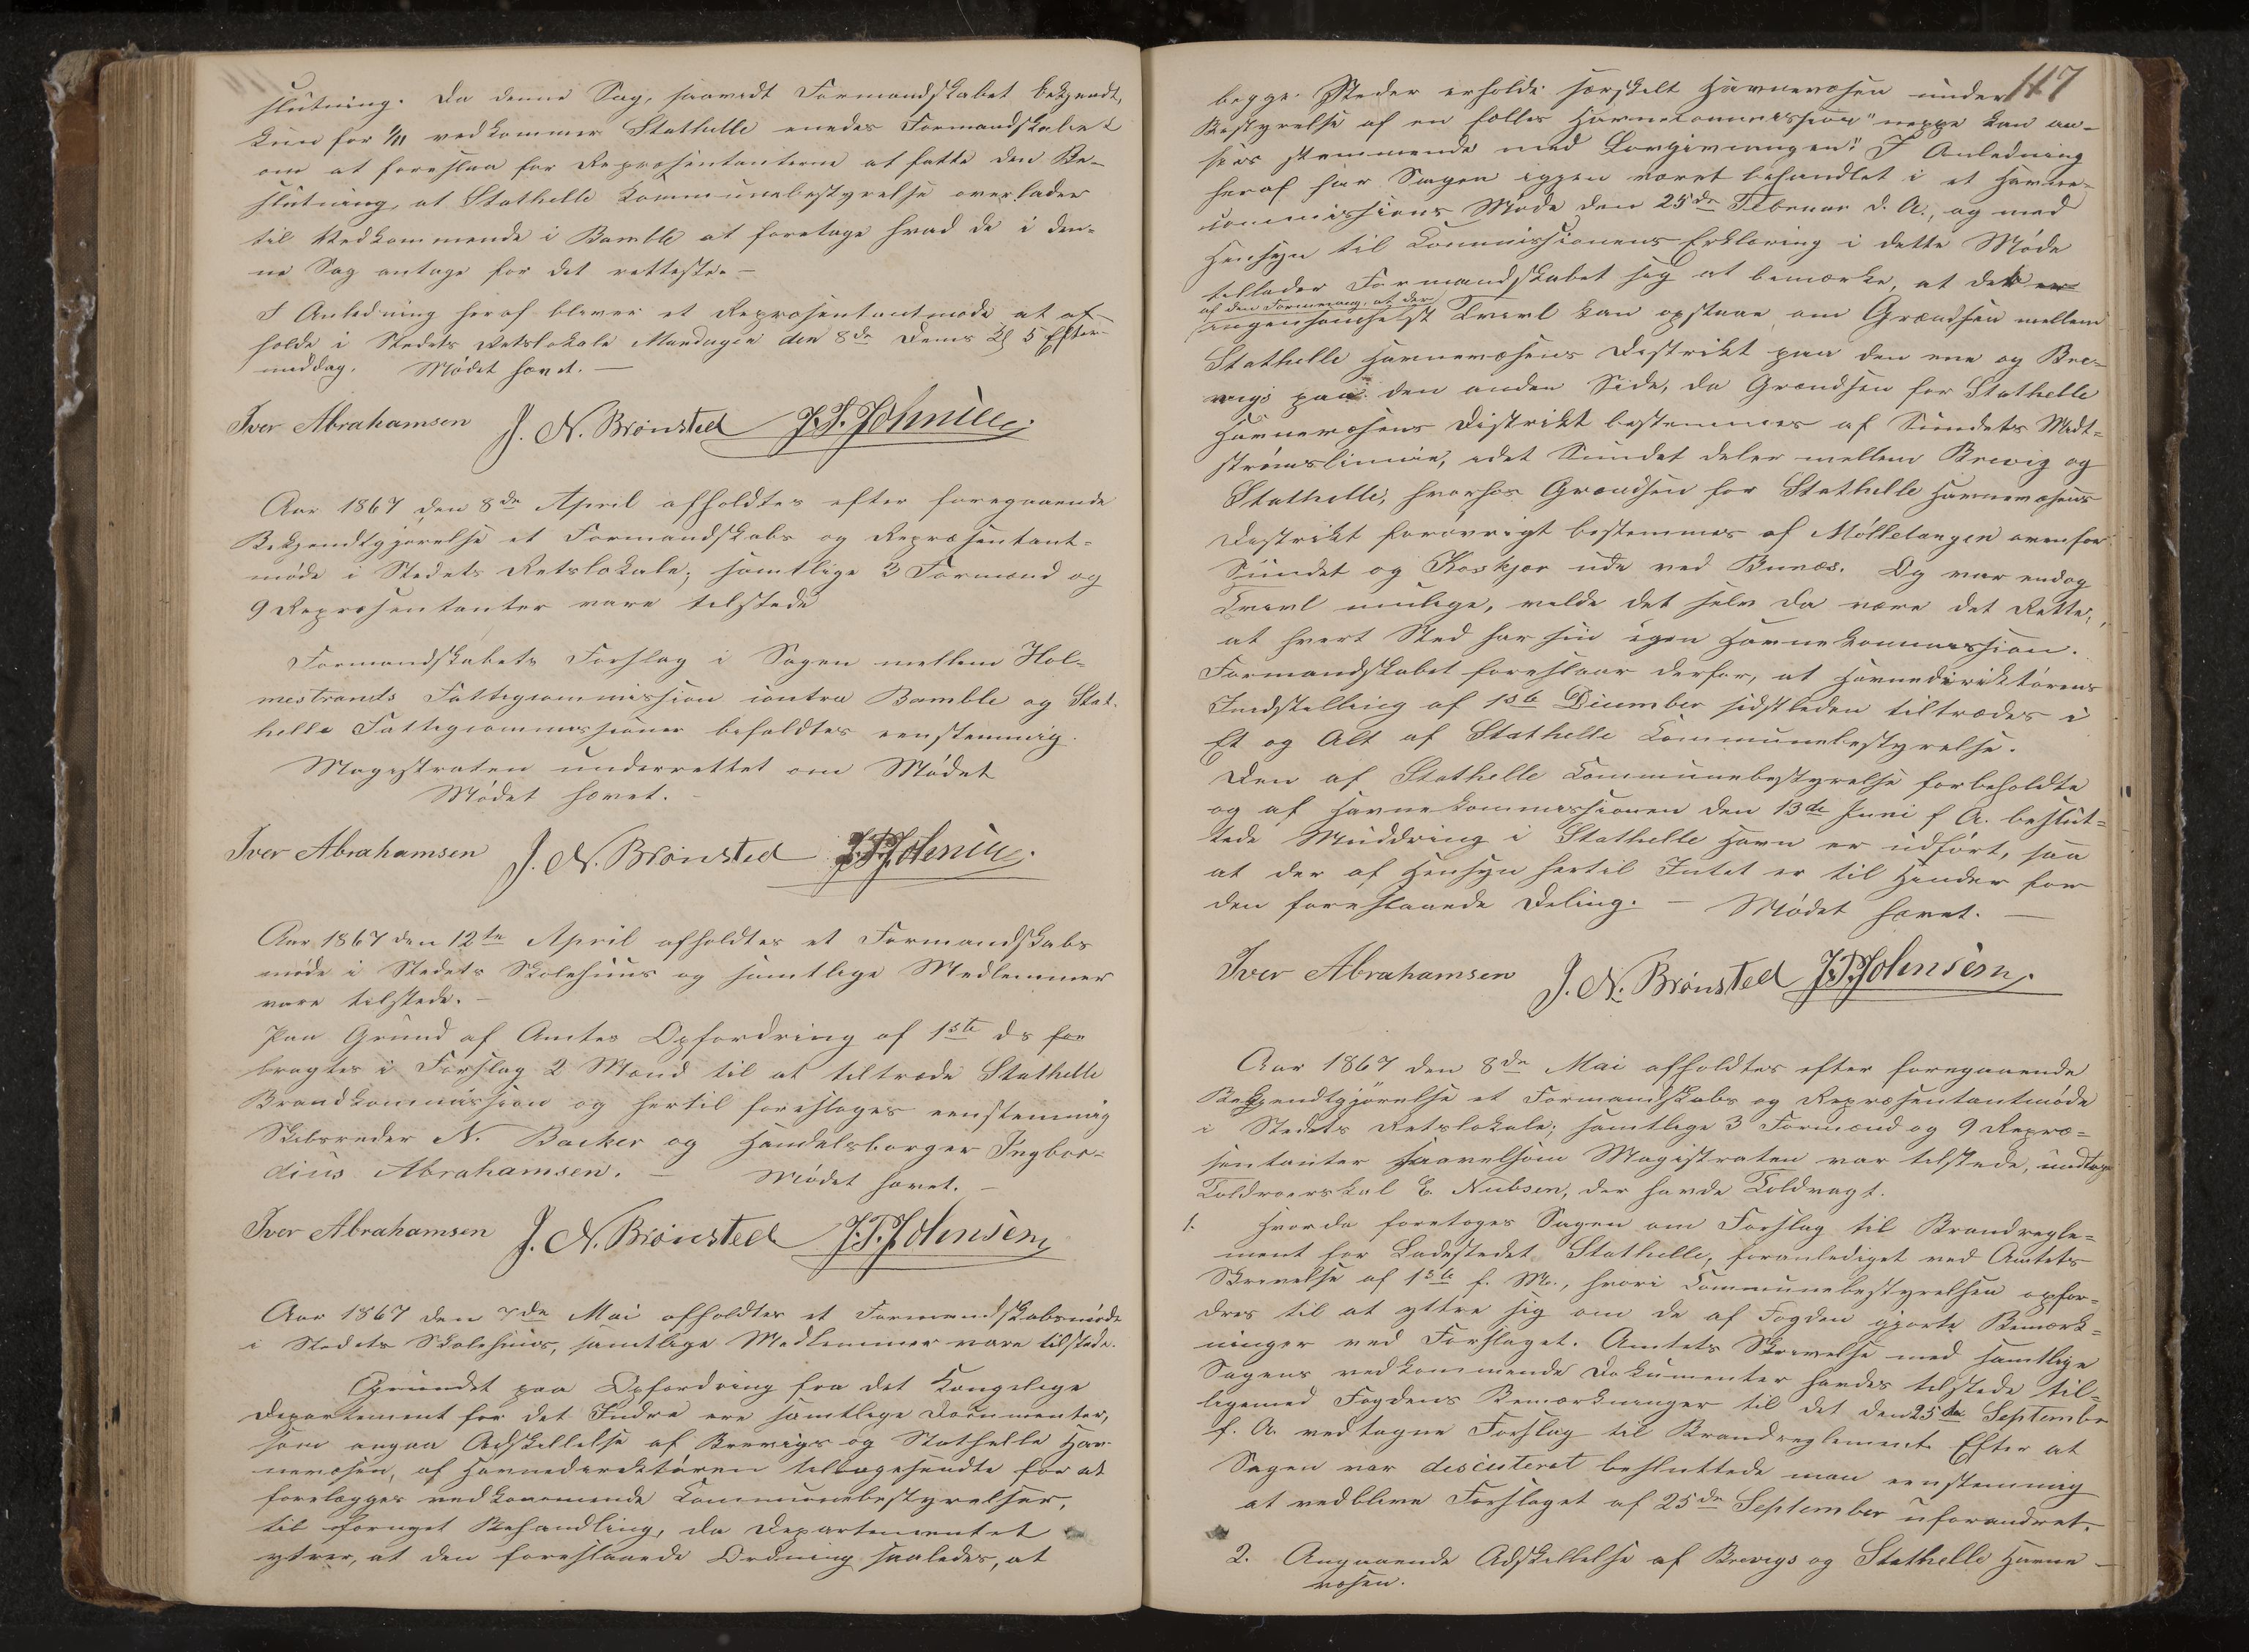 slutning. Da denne Sag, saavidt Formandskabet bekjendt,
kun for 1/11 vedkommer Stathelle enedes Formandskabet
om at foreslaa for Repræsentanterne at fatte den Be-
slutning, at Stathelle Kommunebestyrelse overlader
til Vedkommende i Bamble at foretage hvad de i den-
ne Sag antage for det retteste. —
I Anledning heraf bliver et Repræsentantmøde at af-
holde i Stedets Retslokale Mandagen den 8de dennes Kl 5 Efter-
middag. Mødet hævet. —
Iver Abrahamsen J. N. Brønsted J.T. Johnsen.
Aar 1867 den 8de April afholdtes efter foregaaende
Bekjendtgjørelse et Formandskabs og Repræsentant-
møde i Stedets Retslokale; samtlige 3 Formænd og
9 Repræsentanter vare tilstede
Formandskabets Forslag i Sagen mellem Hol-
mestrands Fattigcommission contra Bamble og Stat-
helle Fattigcommissioner befoldtes eenstemmig.
Magistraten underrettet om Mødet
Mødet hævet. -
Iver Abrahamsen J. N. Brønsted J.T. Johnsen.
Aar 1867 den 12te April afholdtes et Formandskabs
møde i Stedets Skolehuus og samtlige Medlemmer
vare tilstede. -
Paa Grund af Amtes Opfordring af 1ste ds for
bragtes i Forslag 2 Mænd til at tiltræde Stathelle
Brandkommission og hertil foresloges eenstemmig
Skibsreder N. Backer og Handelsborger Ingbor-
dius Abrahamsen. — Mødet hævet. -
Iver Abrahamsen J. N. Brønsted J.T. Johnsen
Aar 1867 den 7de Mai afholdtes et Formandskabsmøde
i Stedets Skolehuus, samtlige Medlemmer vare tilstede.
Grundet paa Opfordring fra det Kongelige
Departement for det Indre ere samtlige Documenter,
som angaa Adskillelse af Brevigs og Stathelle Hav-
nevæsen, af Havnedirektøren tilbagesendte for at
forelægges vedkommende Communebestyrelser,
til fornyet Behandling, da Departementet
ytrer, at den foreslaaede Ordning saaledes, at
117
begge Steder erholde særskilt Havnevæsen under
Bestyrelse af en fælles Havnecommission" neppe kan an-
sees stemmende med Lovgivningen." I Anledning
heraf har Sagen igjen været behandlet i et Havne-
commissions Møde den 25de Februar d. A., og med
Hensyn til Commissionens Erklæring i dette Møde
tillader Formandskabet sig at bemærke, at det er
af den Formening, at der
ingensomhelst Tvivl kan opstaae om Grændsen mellem
Stathelle Havnevæsens Distrikt paa den ene og Bre-
vigs paa den anden Side, da Grændsen for Stathelle
Havnevæsens Distrikt bestemmes af Sundets Midt-
strømslinie, idet Sundet deler mellem Brevig og
Stathelle, hvorhos Grændsen for Stathelle Havnevæsens
Distrikt forøvrigt bestemmes af Mölletangen ovenfor
Sundet og Koskjær ude ved Bunæs. Og var endog
Tvivl mulige, vilde det selv da være det Rette,
at hvert Sted har sin egen Havnekommission.
Formandskabet foreslaar derfor, at Havnedirektørens
Indstilling af 1ste December sidstleden tiltrædes i
Et og Alt af Stathelle Communebestyrelse.
Den af Stathelle Communebestyrelse forbeholdte
og af Havnekommissionen den 13de Juni f A. beslut-
tede Muddring i Stathelle Havn er udført, saa
at der af Hensyn hertil Intet er til Hinder for
den foreslaaede Deling. — Mødet hævet. —
Iver Abrahamsen J. N. Brønsted J.T. Johnsen.
Aar 1867 den 8de Mai afholdtes efter foregaaende
Bekjendtgjørelse et Formandskabs og Repræsentantmøde
i Stedets Retslokale; samtlige 3 Formænd og 9 Repræ-
sentanter saavelsom Magistraten var tilstede, undtagen
Toldroerskal E. Nubsen, der havde Toldvagt.
1. Hvorda foretoges Sagen om Forslag til Brandregle-
ment for Ladestedet Stathelle, foranlediget ved Amtets
Skrivelse af 1ste f. M., hvori Communebestyrelsen opfor-
dres til at yttre sig om de af Fogden gjorte Bemærk-
ninger ved Forslaget. Amtets Skrivelse med samtlige
Sagens vedkommende Dokumenter havdes tilstede til-
ligemed Fogdens Bemærkninger til det den 25de September
f. A. vedtagne Forslag til Brandreglement. Efter at
Sagen var discuteret besluttede man eenstemmig
at vedblive Forslaget af 25de September uforandret.
2. Angaaende Adskillelse af Brevigs og Stathelle Havne-
væsen.